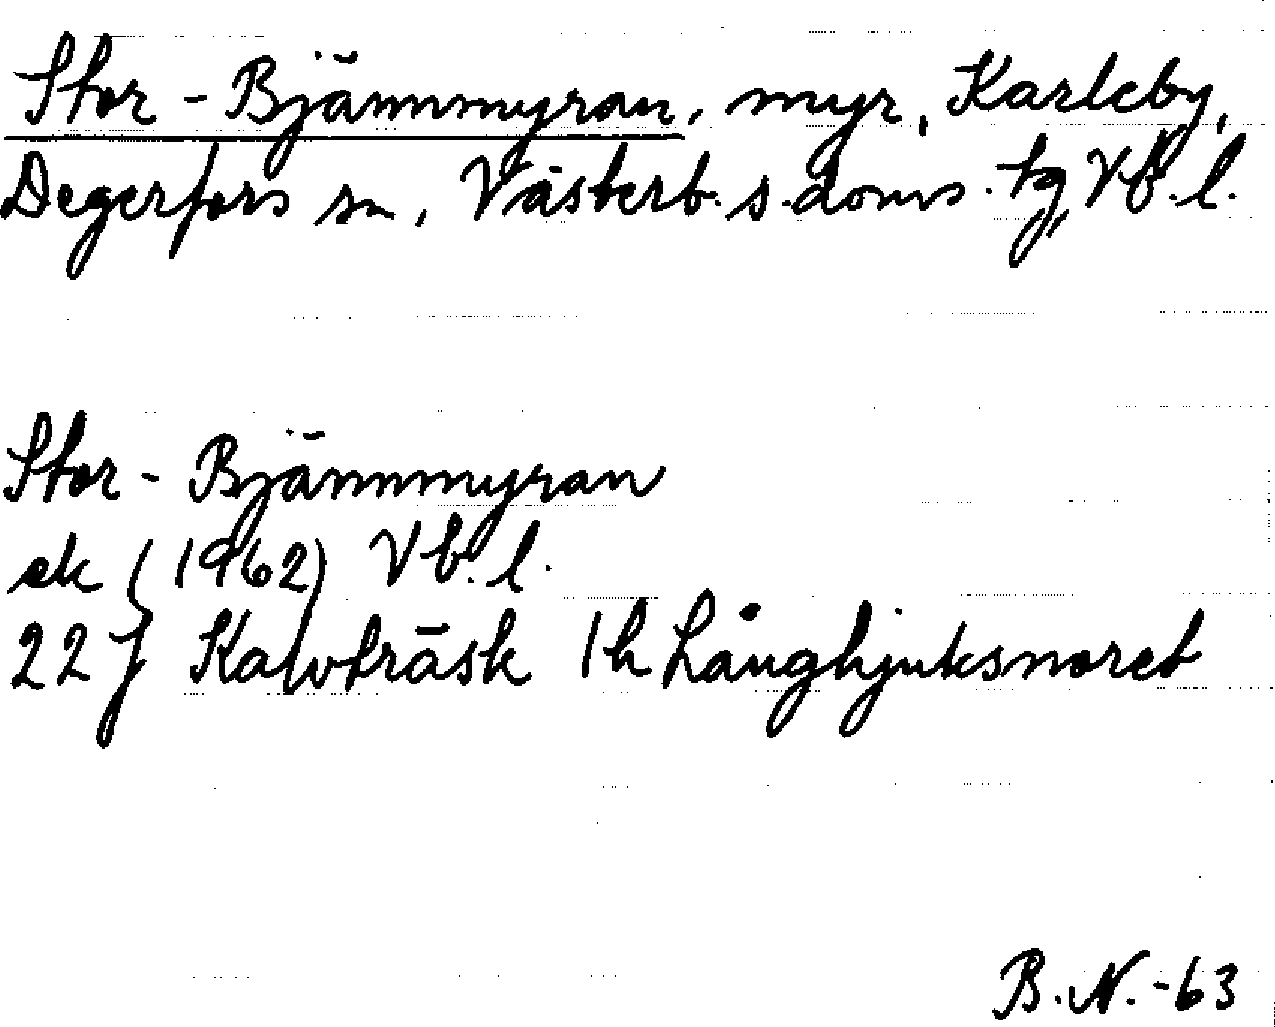 Stor-Bjännmyran, myr, Karleby,
Degerfors sn, Västerb. s. doms. tg, Vb. l.
Stor-Bjännmyran
ek (1962) Vb. l.
22 J Kalvträsk 1h Långhjuksnoret
B.N.-63